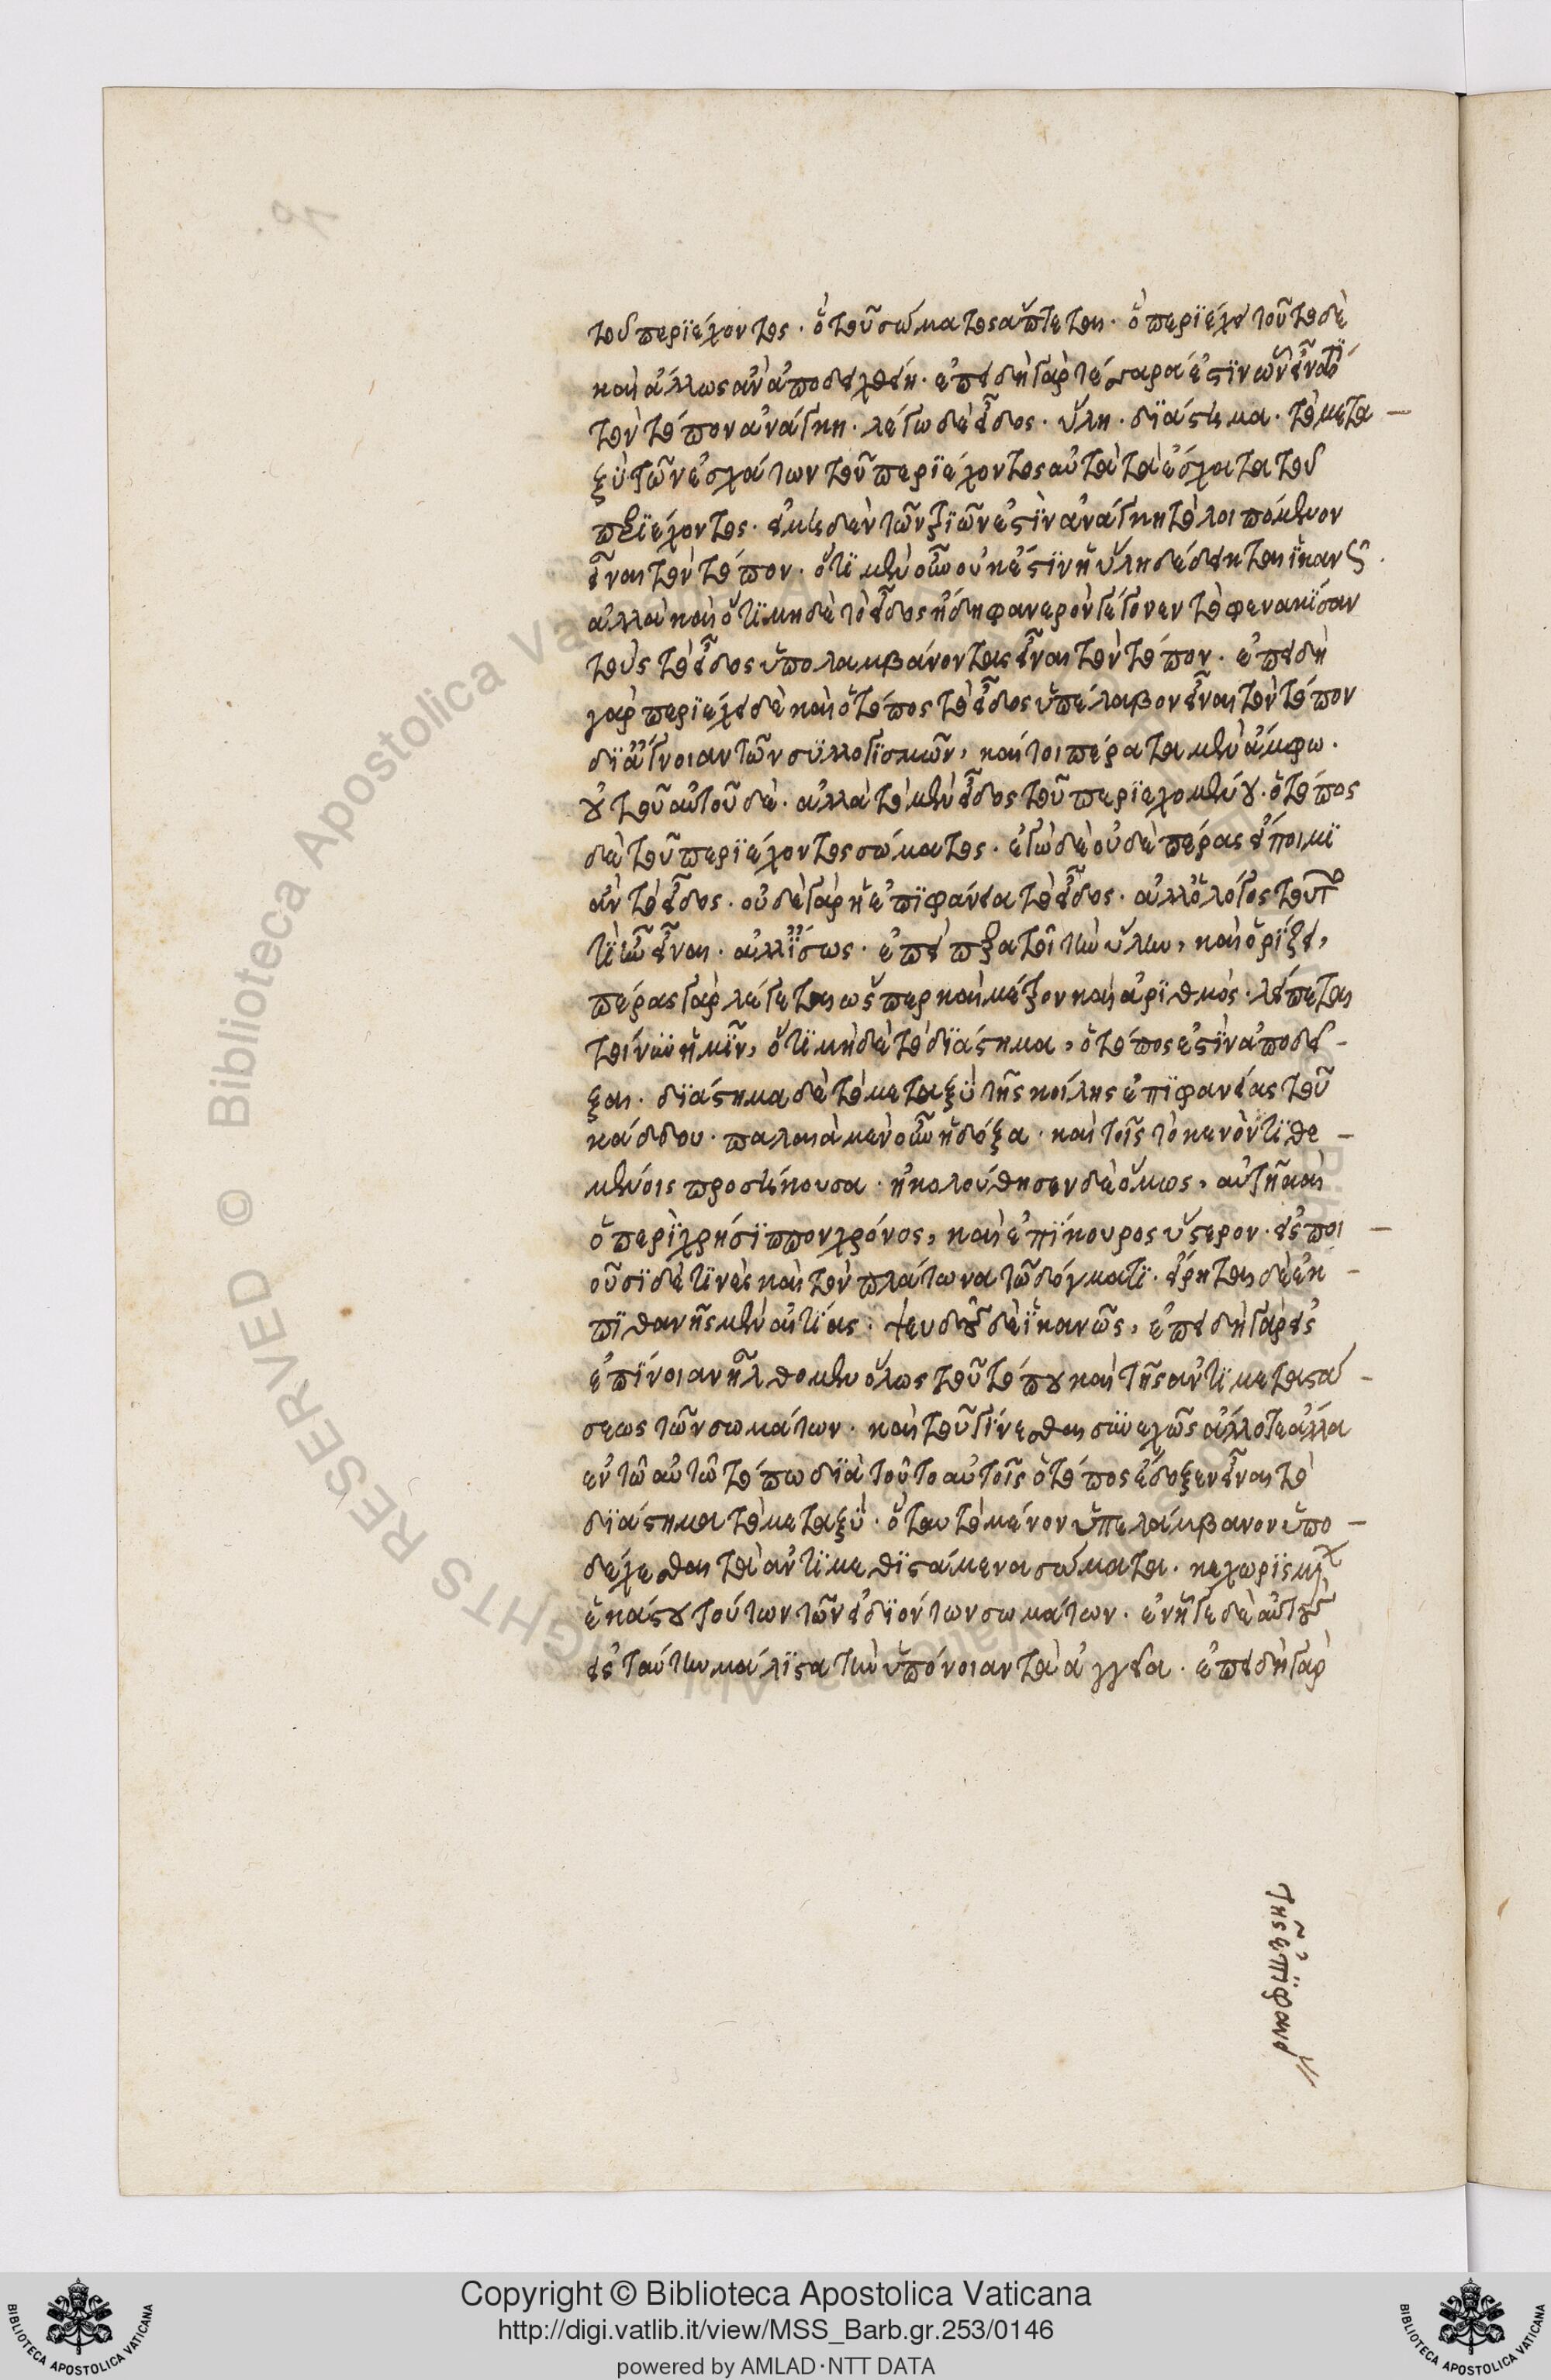 τοῦ περϊέχοντος· ὃ τοῦ σώματος ἅπτεται· ὃ περϊέχει τοῦτο δὲ
καὶ ἄλλως ἂν ἀποδειχθείη· ἐπειδὴ γὰρ τέσσαρά ἐστϊν ὧν εἶναί τϊ
τὸν τόπον ἀνάγκη· λέγω δὲ εἶδος· ὕλη· δϊάστημα· τὸ μετα-
ξὺ τῶν ἐσχάτων τοῦ περϊέχοντος αὐτὰ τὰ ἔσχατα τοῦ
περϊέχοντος· εἰ μηδὲν τῶν τρϊῶν ἐστὶν ἀνάγκη τὸ λοιπόμενον
εἶναι τὸν τόπον· ὅτϊ μὲν οὖν οὐκ ἔστϊν ἡ ὕλη δέδεικται ἱκανῶς·
ἀλλὰ καὶ ὅτϊ μηδὲ τὸ εἶδος ἤδη φανερὸν γέγονεν τὸ φενακίσαν
τοὺς τὸ εἶδος ὑπολαμβάνοντας εἶναι τὸν τόπον· ἐπειδὴ
γὰρ περϊέχει δὲ καὶ ὁ τόπος τὸ εἶδος ὑπέλαβον εἶναι τὸν τόπον
δϊ' ἄγνοιαν τῶν συλλογϊσμῶν, καίτοι πέρατα μὲν ἄμφω·
οὐ τοῦ αὐτοῦ δέ· ἀλλὰ τὸ μὲν εἶδος τοῦ περϊεχομένου· ὁ τόπος
δὲ τοῦ περϊέχοντος σώματος· ἐγὼ δὲ οὐδὲ πέρας εἴποιμϊ
ἂν τὸ εἶδος· οὐδὲ γὰρ ἡ ἐπϊφάνεια τὸ εἶδος· ἀλλ' ὁ λόγος τοῦ
τί ἦν εἶναι· ἀλλ' ἴσως· ἐπεὶ περατοῖ τὴν ὕλην, καὶ ὁρϊζει,
πέρας γὰρ λέγεται ὥσπερ καὶ μέτρον καὶ ἀρϊθμός· λείπεται
τοίνυν ἡμῖν, ὅτϊ μηδὲ τὸ δϊάστημα, ὁ τόπος ἐστὶν ἀποδεῖ-
ξαι· δϊάστημα δὲ τὸ μεταξὺ τῆς κοίλης ἐπϊφανείας τοῦ
κάδδου· παλαιὰ μὲν οὖν ἡ δόξα· καὶ τοῖς τὸ κενὸν τϊθε-
μένοις προσήκουσα· ἠκολούθησεν δὲ ὅμως, αὐτῇ καὶ
ὁ περὶ χρήσϊππον χρόνος, καὶ ἐπίκουρος ὕστερον· εἰσποι-
οῦσϊ δέ τϊνες καὶ τὸν πλάτωνα τῶ δόγματϊ· εἴρηται δὲ ἐκ
πϊθανῆς μὲν αἰτίας· ψευδοῦς δὲ ἱκανῶς, ἐπειδὴ γὰρ εἰς
ἐπίνοιαν ἤλθομεν ὅλως τοῦ τόπου καὶ τῆς ἀντϊμεταστά-
σεως τῶν σωμάτων· καὶ τοῦ γίνεσθαι συνεχῶς ἄλλοτε ἄλλα
ἐν τῶ αὐτῶ τόπω δϊὰ τοῦτο αὐτοῖς ὁ τόπος ἔδοξεν εἶναι τὸ
δϊάστημα τὸ μεταξύ· ὅταν τὸ μένον ὑπελάμβανον ὑπο-
δέχεσθαι τὰ ἀντϊμεθϊστάμενα σώματα· κεχωρϊσμένον
ἑκάστου τούτων τῶν εἰσϊόντων σωμάτων· ἐνῆγε δὲ αὐτοὺς
εἰς ταύτην μάλϊστα τὴν ὑπόνοιαν τὰ ἀγγεῖα· ἐπειδὴ γὰρ
τῆς ἐπϊφανεί
Copyright © Biblioteca Apostolica Vaticana
http://digi.vatlib.it/view/MSS_Barb.gr.253/0146
powered by AMLAD·NTT DATA